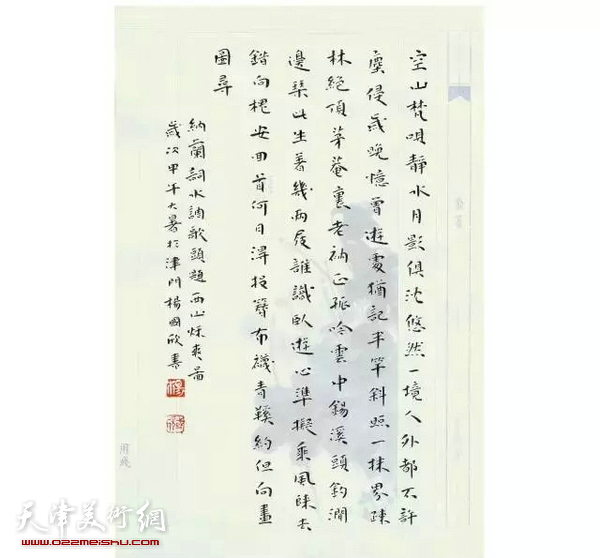 空山梵唄靜水月影俱沈悠然一境人外都不許
塵侵歲晚憶曾遊處猶記半竿斜照一抹界疎
林絕頂茅菴裏老衲正孤吟雲中錫溪頭釣澗
邊琹此生著幾兩屐誰識臥遊心準擬乘風歸去
錯向槐安回首何日得投簪布襪青鞵約但向畫
圖尋
納蘭詞水調歌頭題西山秌爽啚
歲次甲午大暑於津門楊國欣書
天津美術網
www.022meishu.com